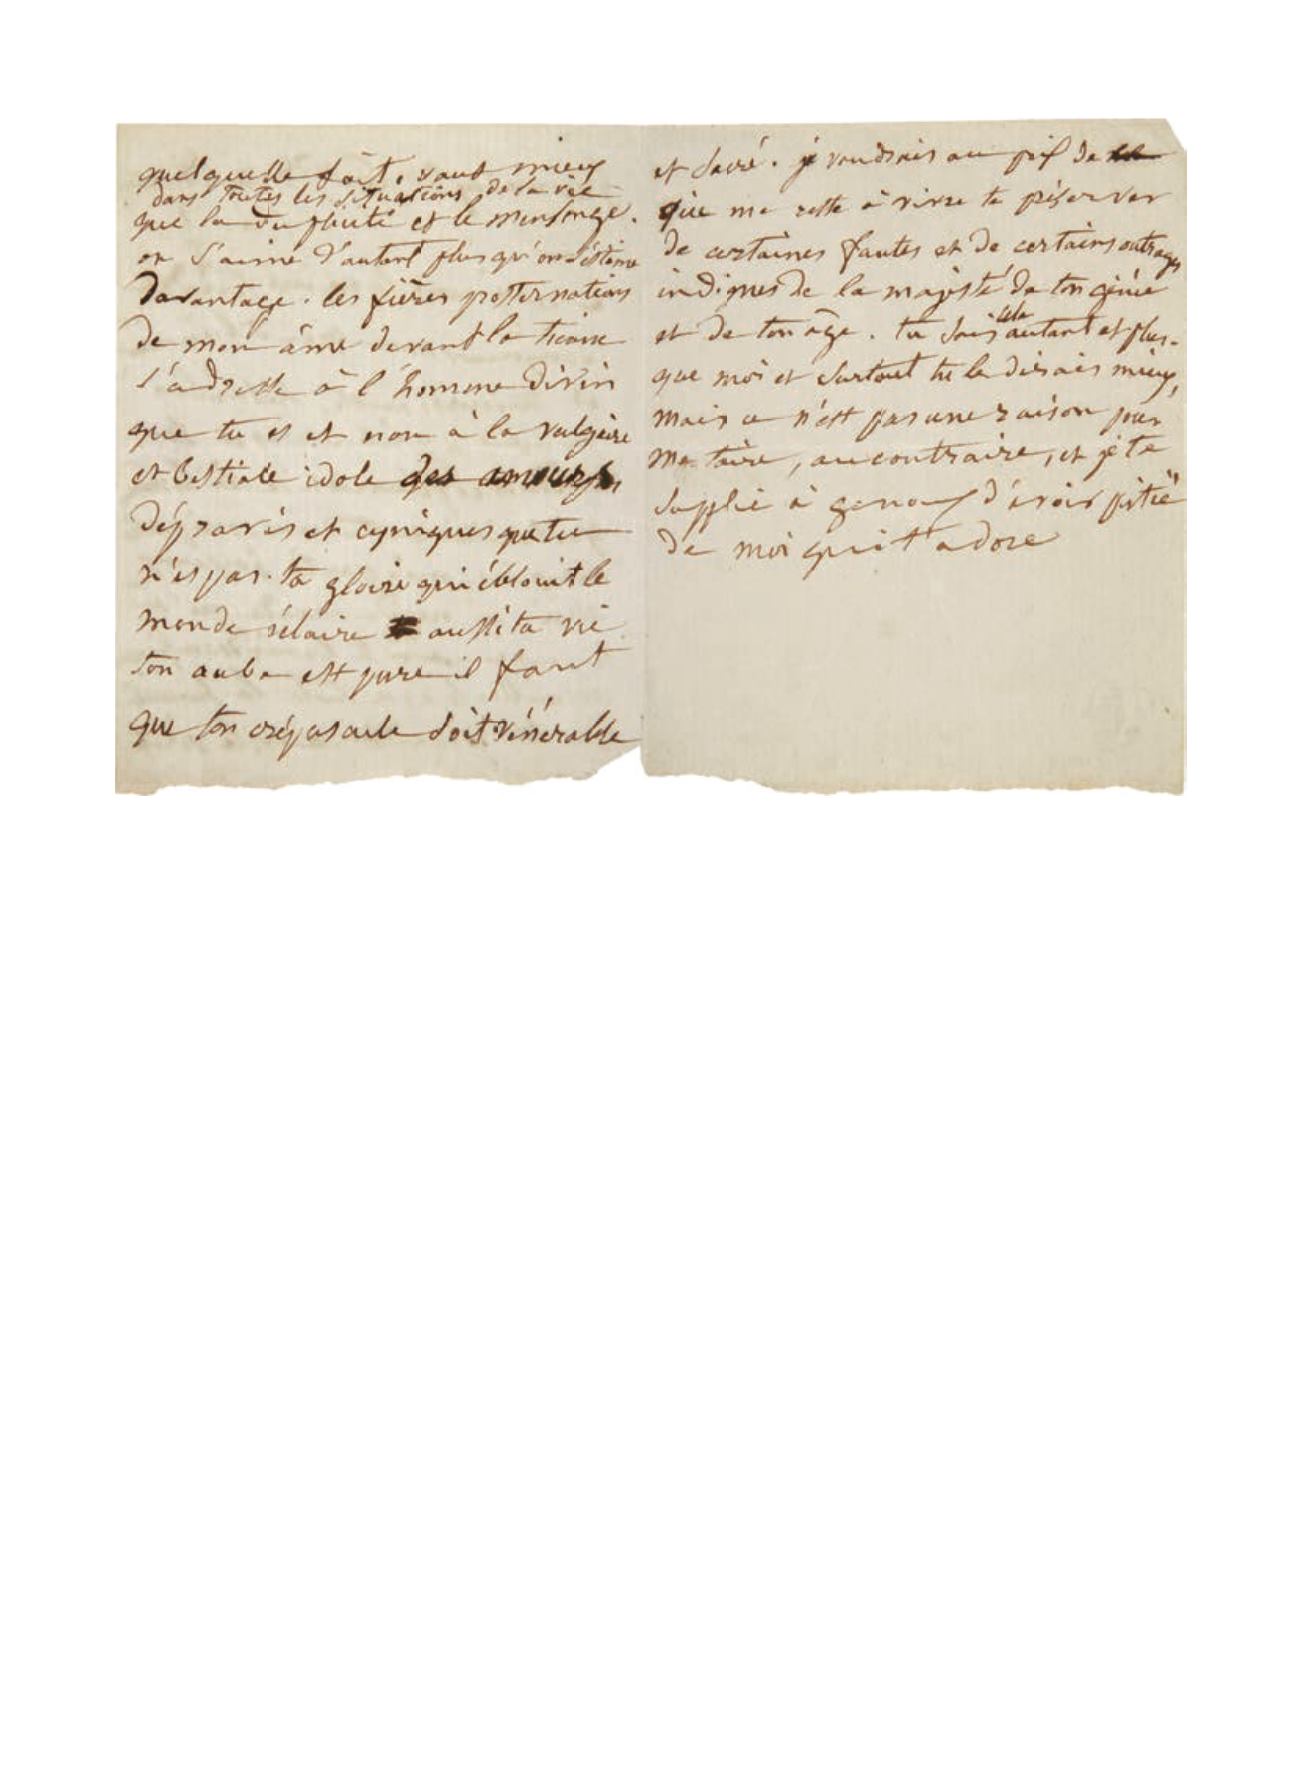 quelquelle soit, vaut mieux
dans toutes les situations de la vie
que la duplicité et le mensonge.
on s'aime d'autant plus qu'on s'estime
davantage. les fières prosternations
de mon âme devant la tienne
s'adresse à l'homme divin
que tu es et non à la vulgaire
et bestiale idole des amours
dépravés et cyniques que tu
n'es pas. ta gloire qui éblouit le
monde éclaire aussi ta vie
ton aube est pure il faut
que ton crépuscule soit vénérable
et sacré. je voudrais au prix de ce
qui me reste à vivre te préserver
de certaines fautes et de certains outrages
indignes de la majesté de ton génie
et de ton âge. tu sais cela autant et plus
que moi et surtout tu le dirais mieux,
mais ce n'est pas une raison pour
me taire, au contraire, et je te
supplie à genoux d'avoir pitié
de moi qui t'adore